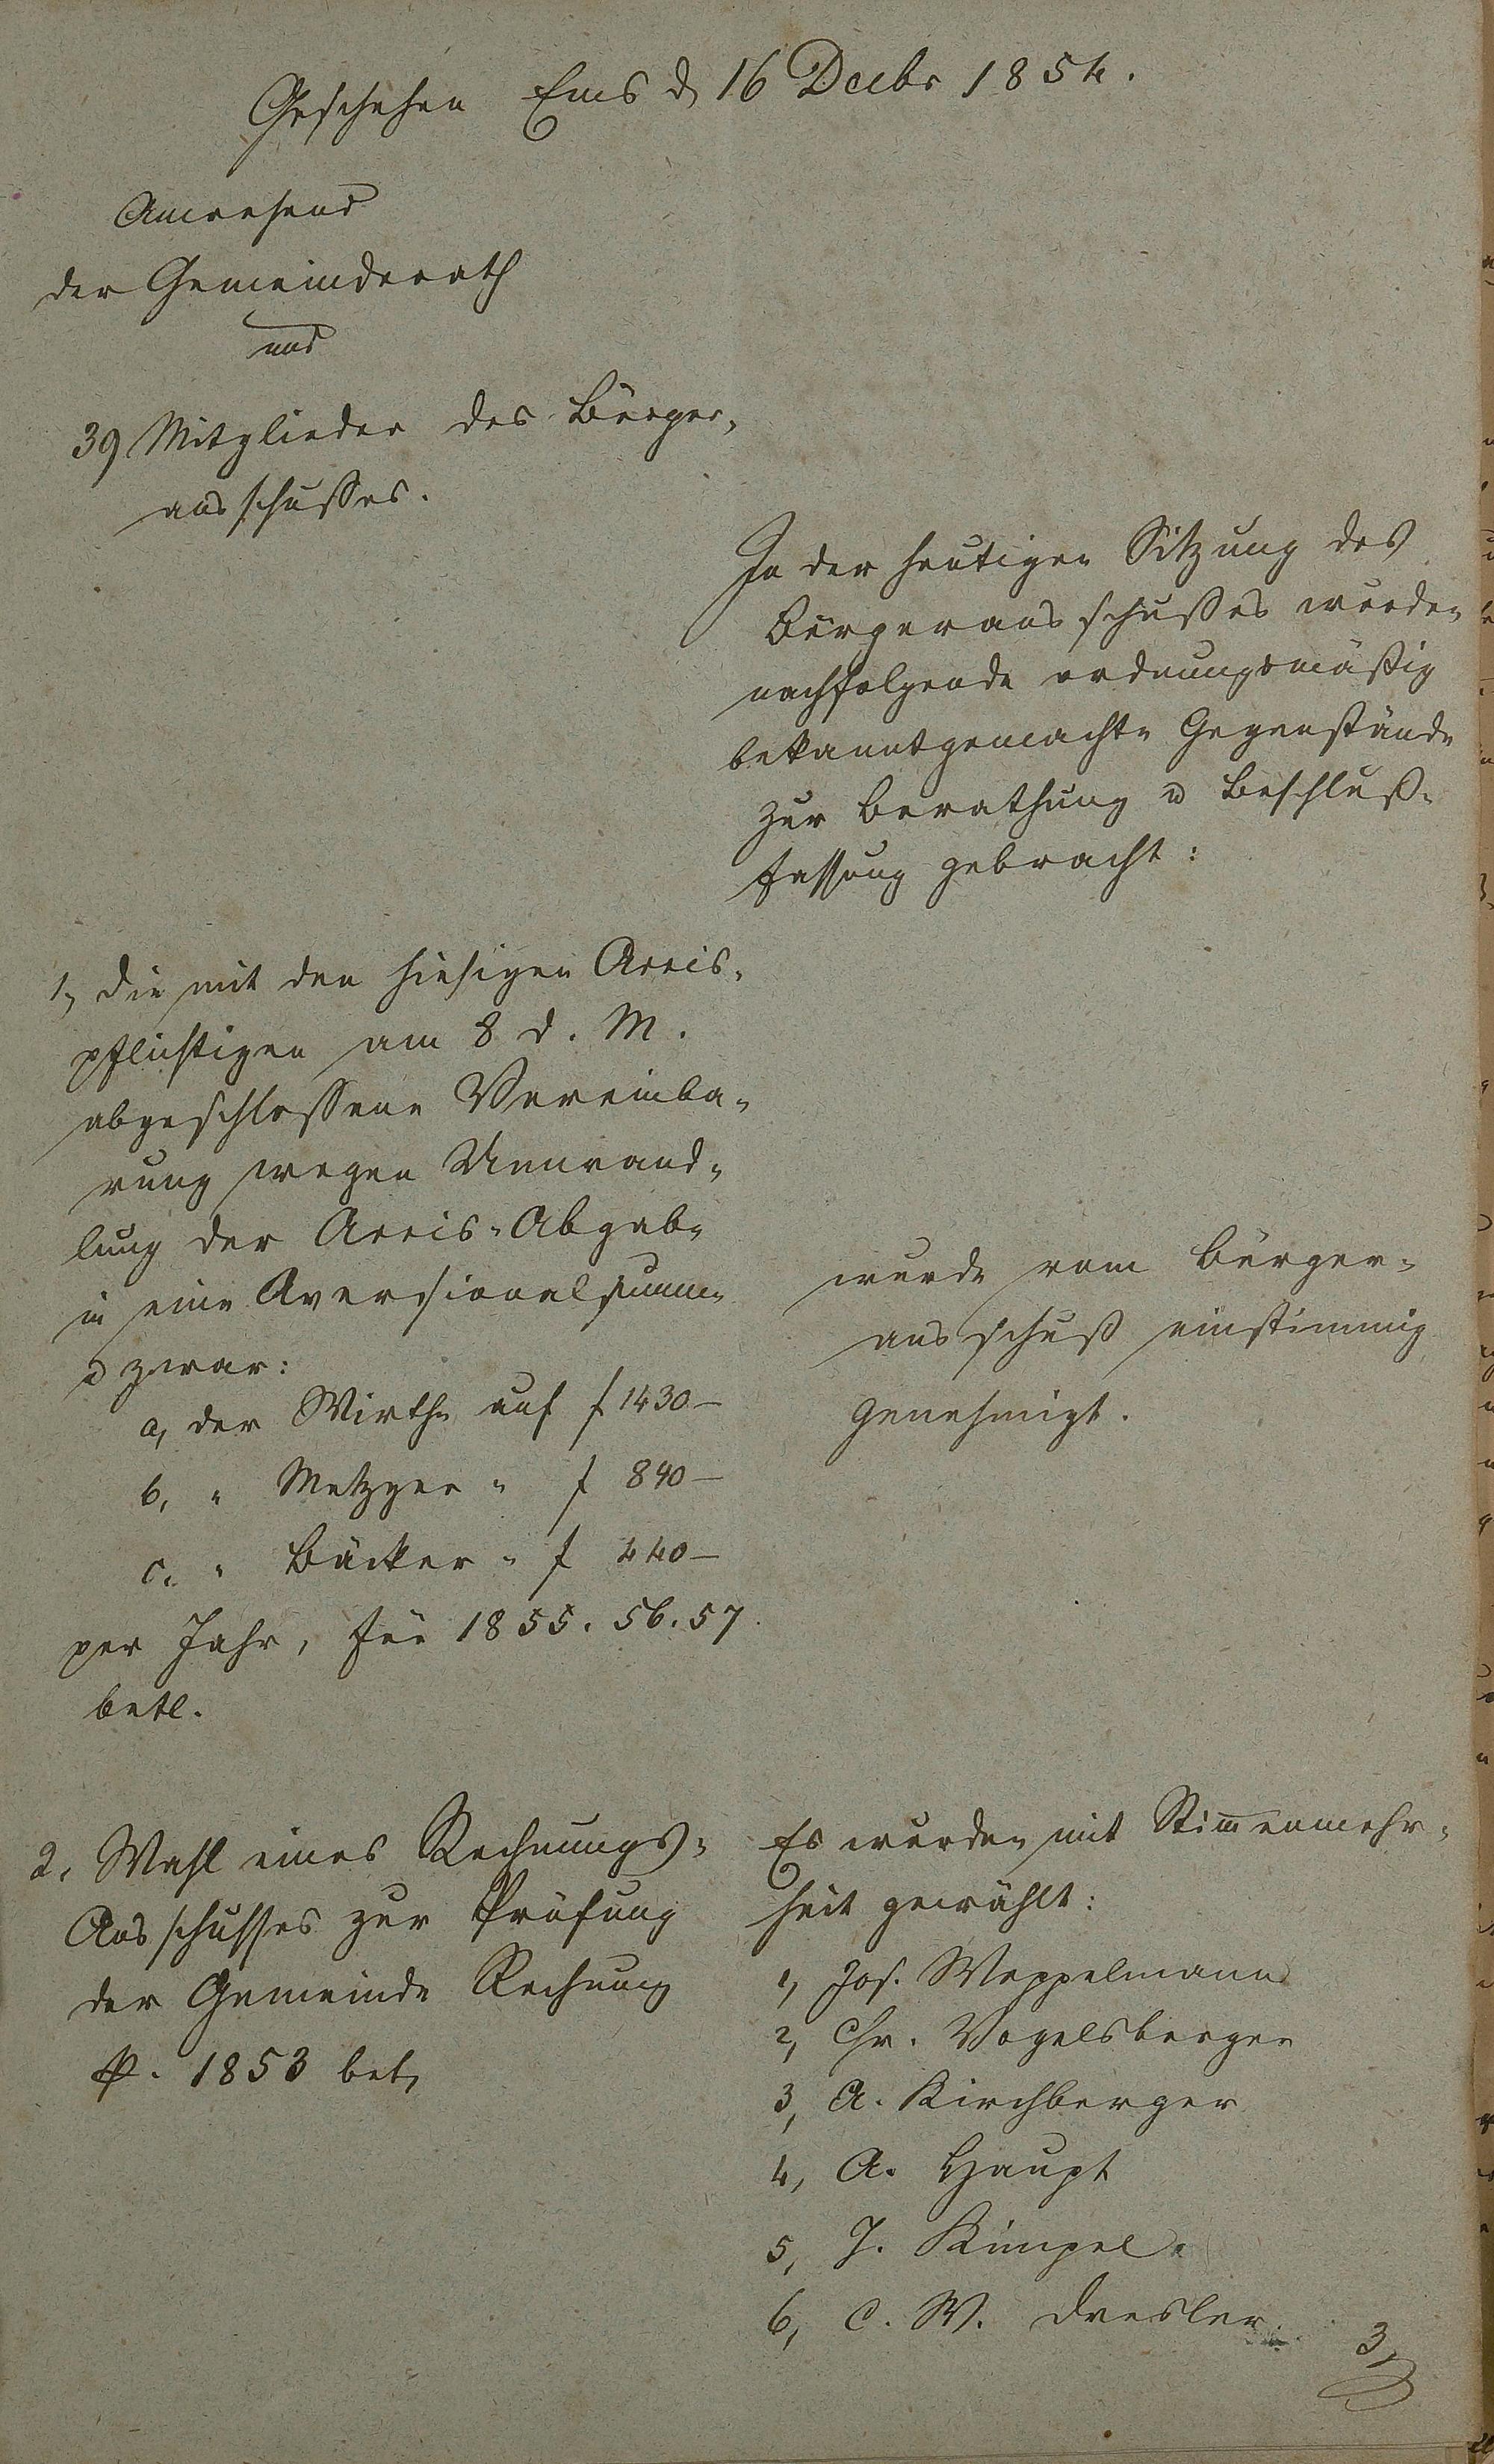 Geschehen Ems d 16 Decbr 1854.
Anwesend
der Gemeinderath
und
39 Mitglieder des Bürger-
ausschußes.
In der heutigen Sitzung des
Bürgerausschußes wurden
nachfolgende ordnungsmäßig
bekanntgemachte Gegenstände
zur Berathung u Beschluß-
fassung gebracht:
1, die mit den hiesigen Accis-
pflichtigen am 8 d. M.
abgeschlossene Vereinba-
rung wegen Umwand-
lung der Accis-Abgabe
in eine Aversionalsumme
u zwar:
a, der Wirthe auf f 1430 –
b, " Metzger " f 840 –
c, " Bäcker " f 440 –
per Jahr, für 1855. 56. 57
betl.
wurde vom Bürger-
ausschuß einstimmig
genehmigt.
2, Wahl eines Rechnungs-
Ausschusses zur Prüfung
der Gemeinde Rechnung
p. 1853 bet,
Es wurden mit Stimmenmehr-
heit gewählt:
1, Jos. Weppelmann
2, Chr. Vogelsberger
3, A. Kirchberger
4, A. Haupt
5, J. Kimpel.
6, C. W. Dresler.
3,